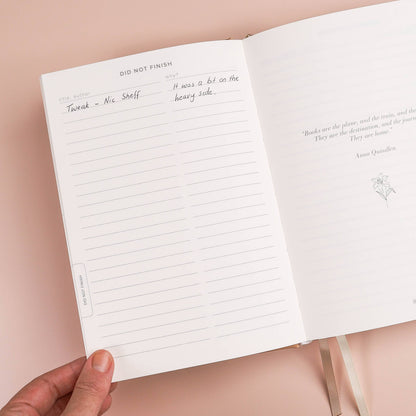 DID NOT FINISH
title, author
why?
Tweak - Nic Sheff
It was a bit on the
heavy side.
DID NOT FINISH
"Books are the plane, and the train, and the
They are the destination, and the
They are home."
Anna Quindlen.